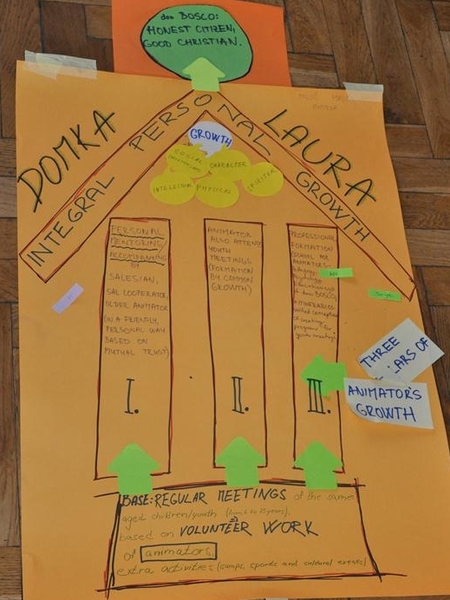 don BOSCO:
HONEST CITIZEN,
GOOD CHRISTIAN.
DOMKA
LAURA
INTEGRAL PERSONAL GROWTH
GROWTH
SOCIAL
CHARACTER
INTELLECTUAL
PHYSICAL
SPIRITUAL
PERSONAL
MENTORING/
ACCOMPANYING
BY
SALESIAN,
SAL. COOPERATOR,
OLDER ANIMATOR
(IN A FRIENDLY,
PERSONAL WAY
BASED ON
MUTUAL TRUST)
I.
ANIMATOR
ALSO ATTENDS
YOUTH
MEETINGS
(FORMATION
BY COMMON
GROWTH)
II.
PROFESSIONAL
FORMATION
SCHOOL FOR
ANIMATORS-
of don BOSCO,
III.
THREE
ARS OF
ANIMATOR'S
GROWTH
BASE: REGULAR MEETINGS of the same
aged children/youth
based on VOLUNTEER WORK
of animators,
extra activities (camps, sports and cultural events)